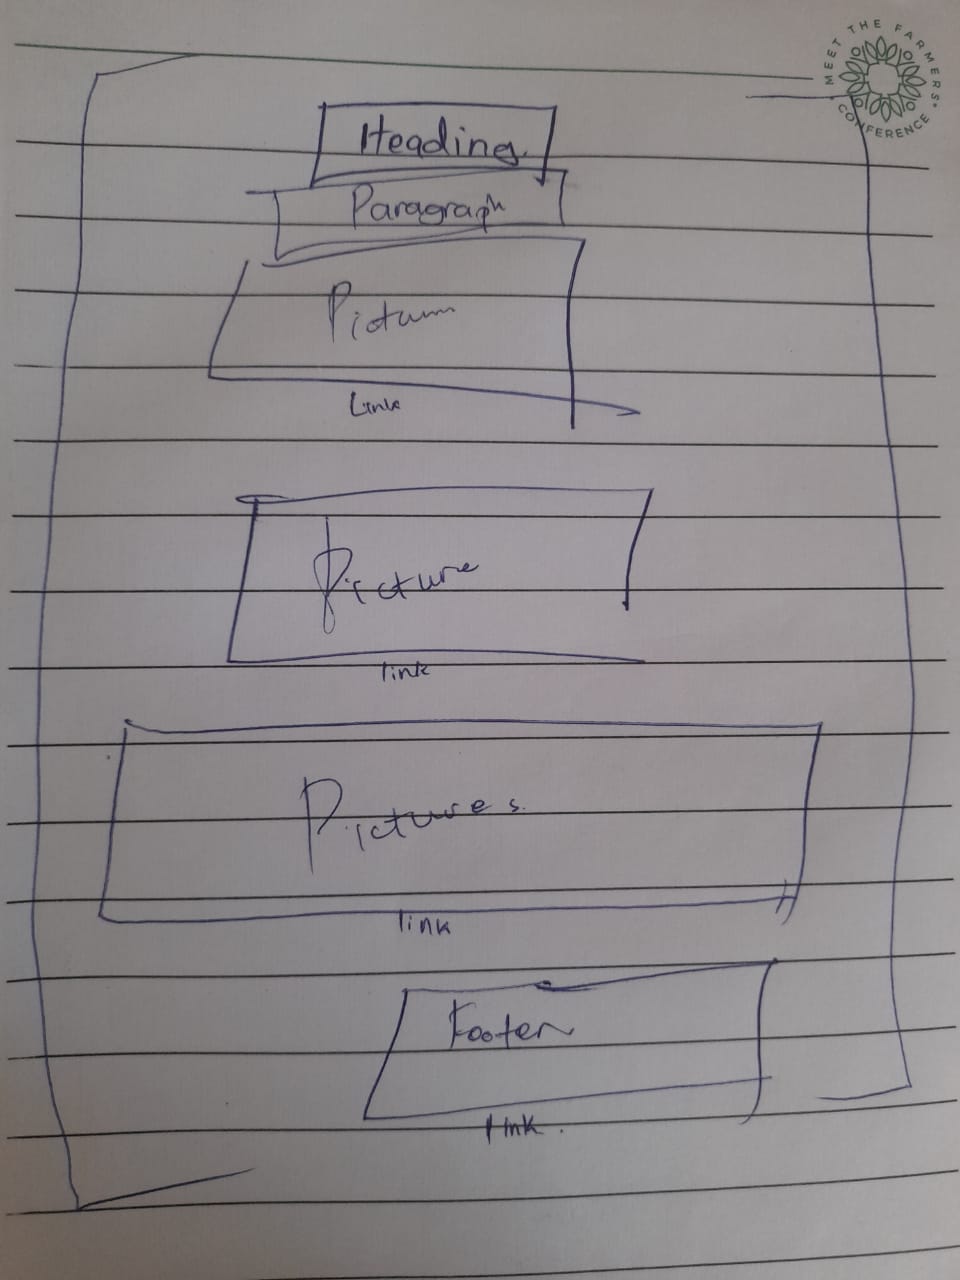 MEET THE FARMERS CONFERENCE
Heading
Paragraph
Link
Picture
link
Pictures
link
Footer
link